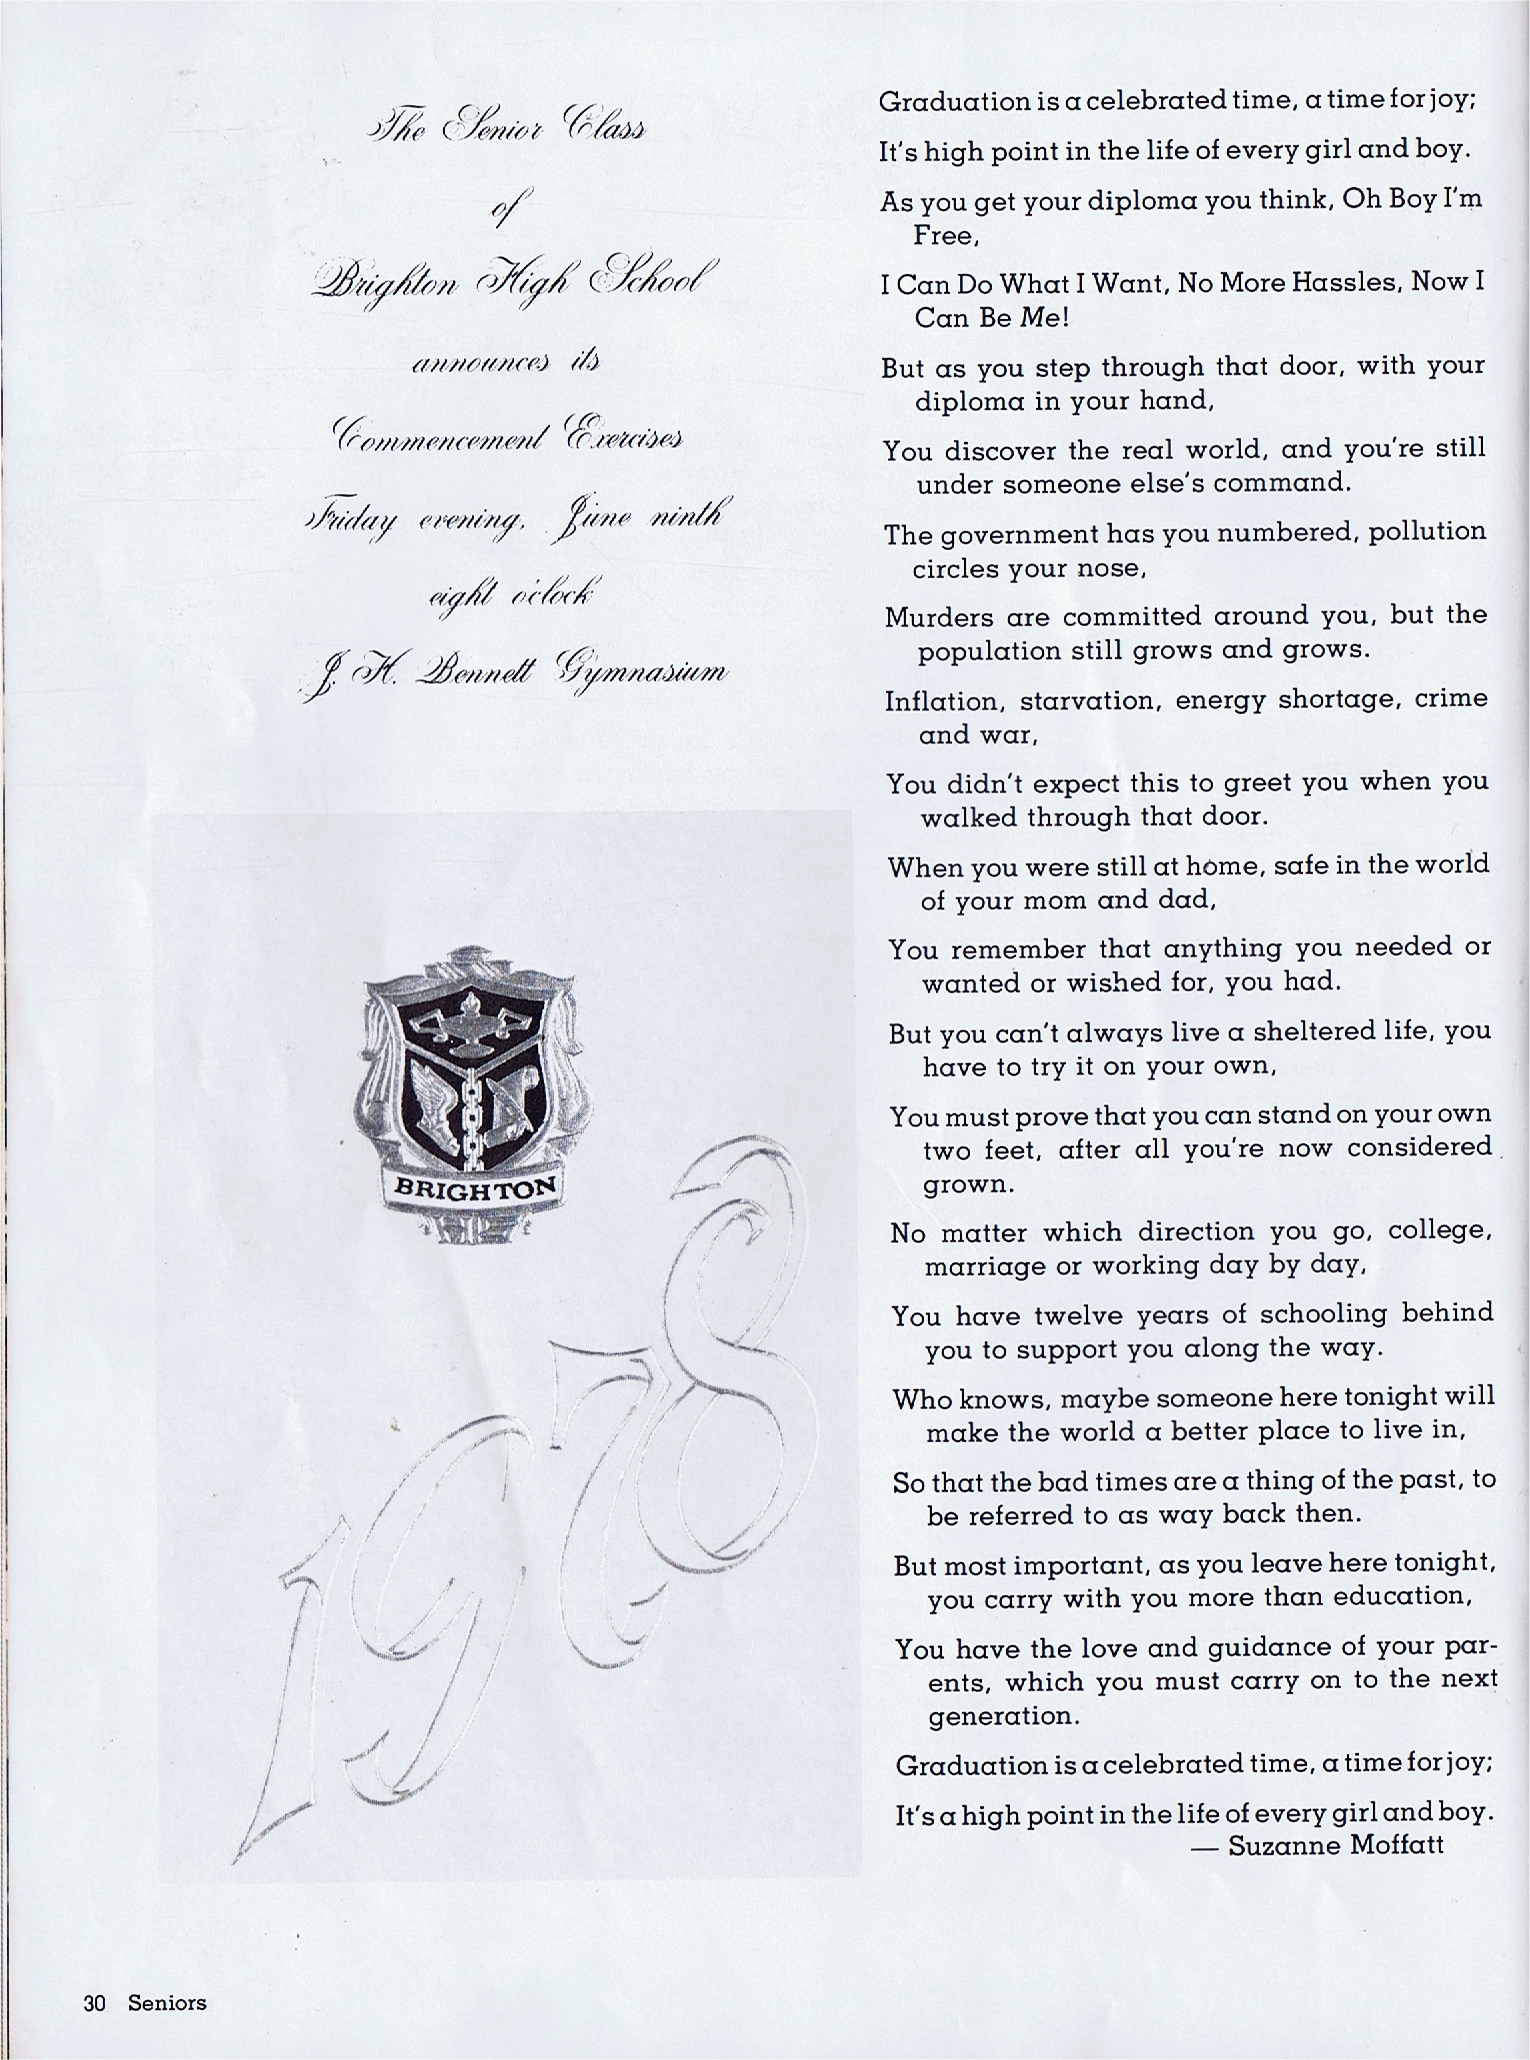 The Senior Class
of
Brighton High School
announces its
Commencement Exercises
Friday evening, June ninth
eight o'clock
J. H. Bennett Gymnasium
BRIGHTON
1978
Graduation is a celebrated time, a time for joy;
It's high point in the life of every girl and boy.
As you get your diploma you think, Oh Boy I'm
Free,
I Can Do What I Want, No More Hassles, Now I
Can Be Me!
But as you step through that door, with your
diploma in your hand,
You discover the real world, and you're still
under someone else's command.
The government has you numbered, pollution
circles your nose,
Murders are committed around you, but the
population still grows and grows.
Inflation, starvation, energy shortage, crime
and war,
You didn't expect this to greet you when you
walked through that door.
When you were still at home, safe in the world
of your mom and dad,
You remember that anything you needed or
wanted or wished for, you had.
But you can't always live a sheltered life, you
have to try it on your own,
You must prove that you can stand on your own
two feet, after all you're now considered
grown.
No matter which direction you go, college,
marriage or working day by day,
You have twelve years of schooling behind
you to support you along the way.
Who knows, maybe someone here tonight will
make the world a better place to live in,
So that the bad times are a thing of the past, to
be referred to as way back then.
But most important, as you leave here tonight,
you carry with you more than education,
You have the love and guidance of your par-
ents, which you must carry on to the next
generation.
Graduation is a celebrated time, a time for joy;
It's a high point in the life of every girl and boy.
— Suzanne Moffatt
30 Seniors